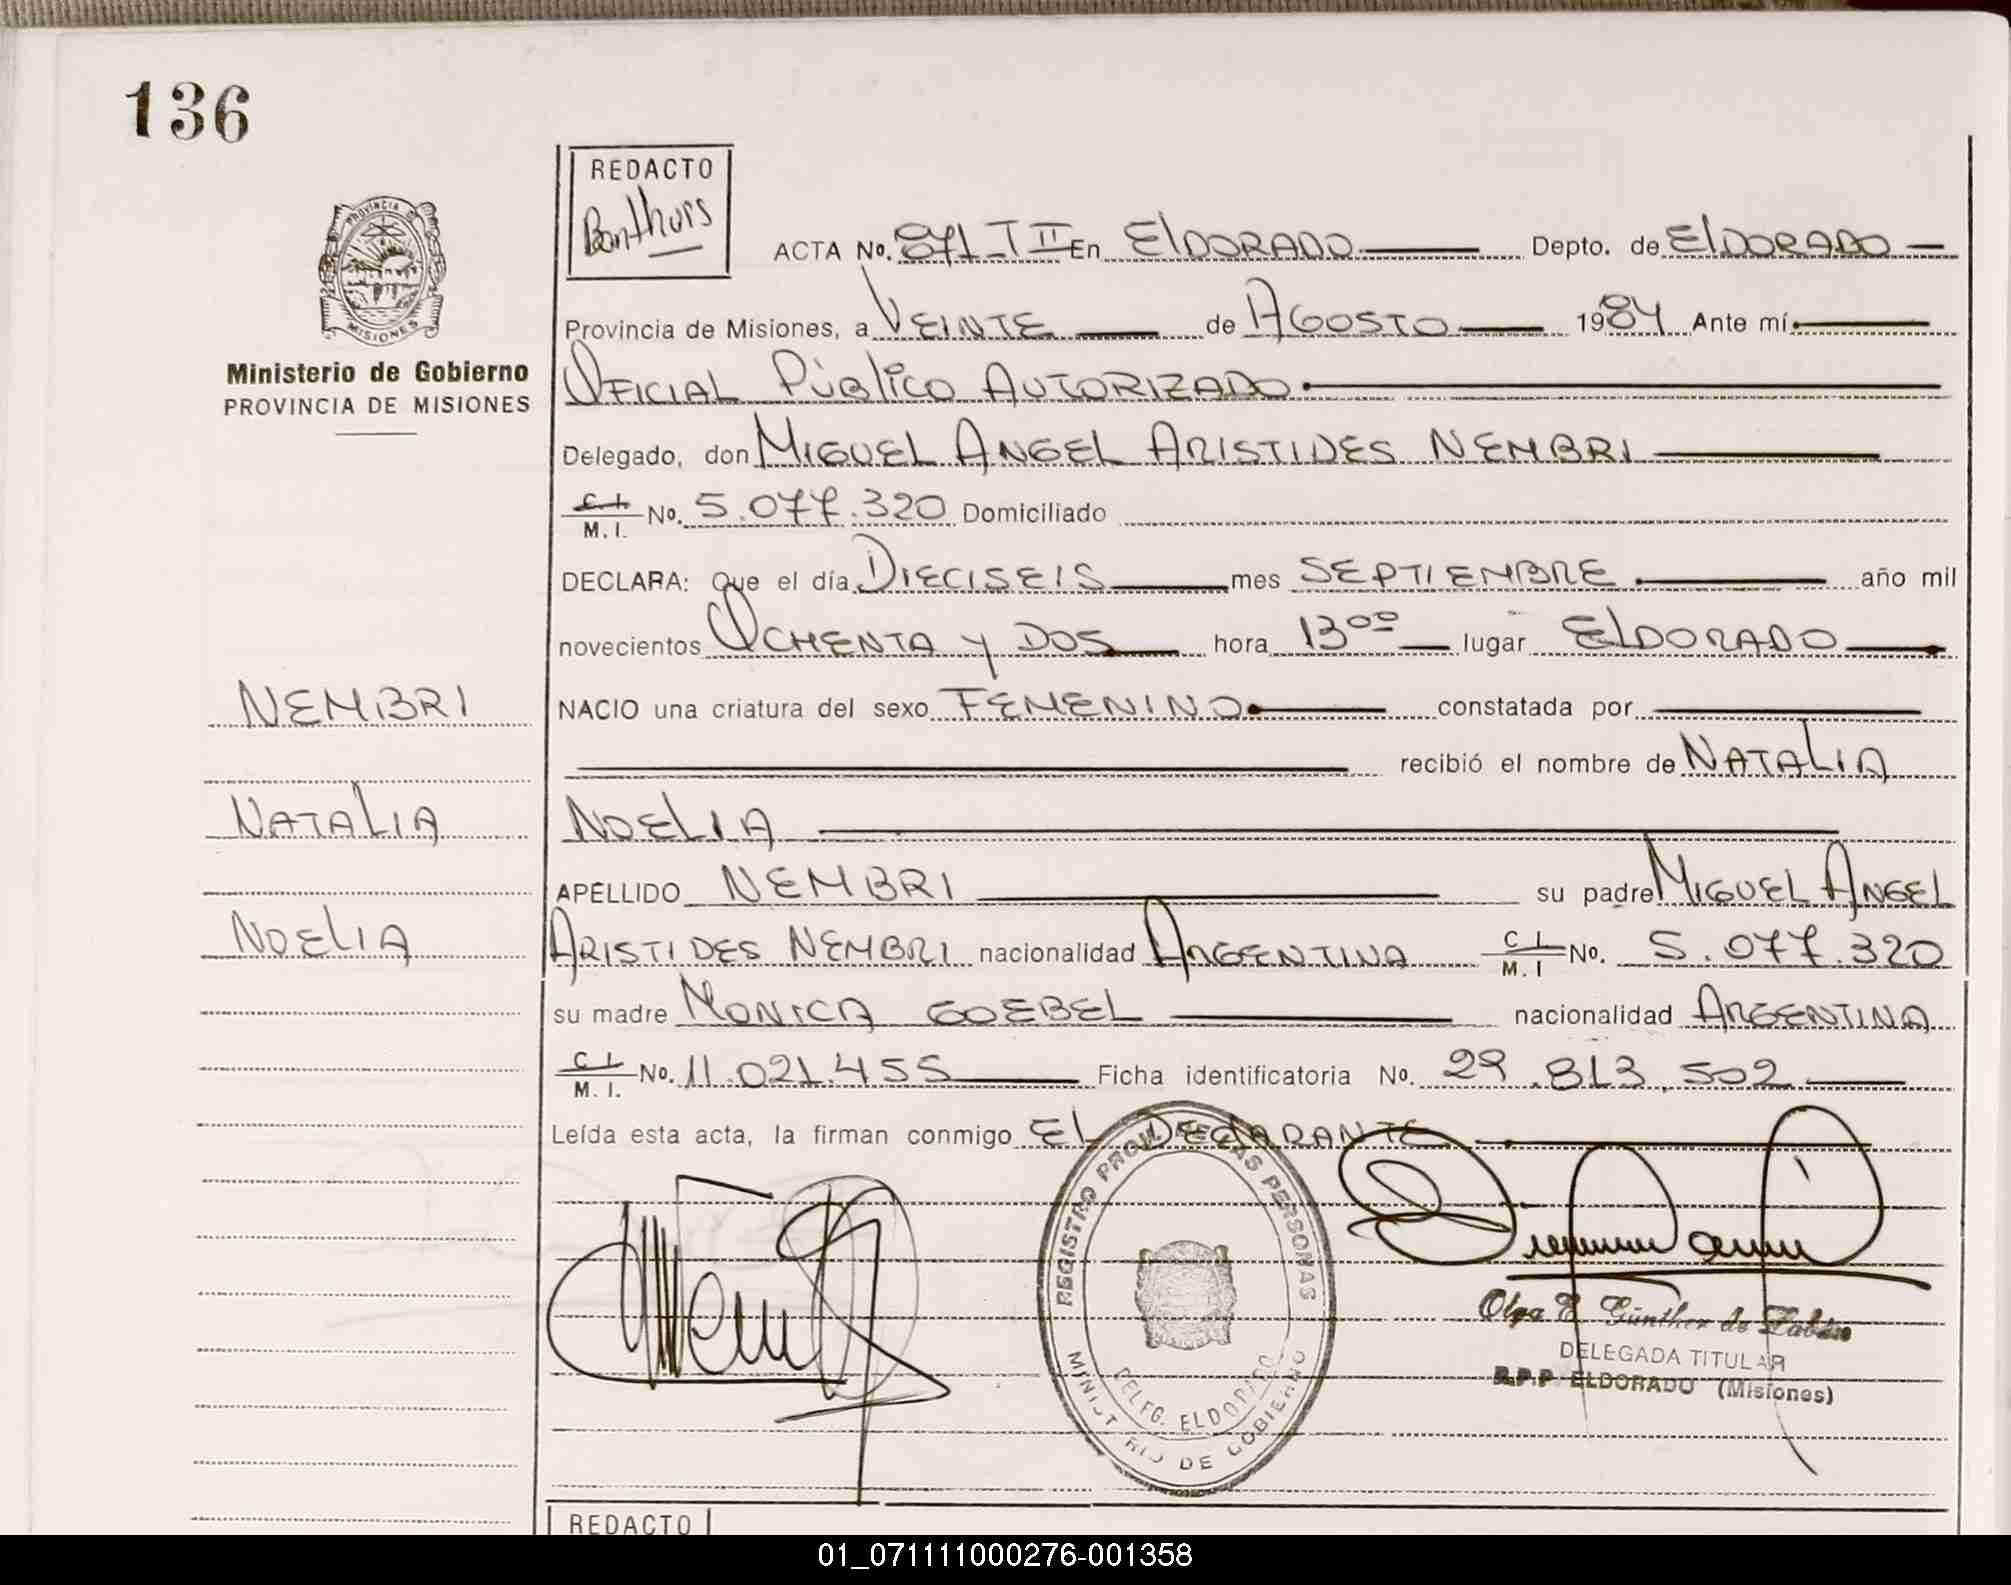 136
REDACTO
Bonthuis
PROVINCIA D
MISIONES
Ministerio de Gobierno
PROVINCIA DE MISIONES
ACTA No. 871-T II En ElDORADO Depto. de ElDORADO
Provincia de Misiones, a VEINTE de AGOSTO 1984 Ante mí
OFICIAL PÚBlICO AUTORIZADO
Delegado, don MIGUEL ANGEL ARISTIDES NEMBRI
C. I. M. I. No. 5.077.320 Domiciliado
DECLARA: Que el día DIECISEIS mes SEPTIEMBRE año mil
novecientos OCHENTA Y DOS hora 13⁰⁰ lugar ElDORADO
NEMBRI
NACIO una criatura del sexo FEMENINO constatada por
recibió el nombre de NATALIA
NATALIA
NOELIA
APELLIDO NEMBRI su padre MIGUEL ANGEL
NOELIA
ARISTIDES NEMBRI nacionalidad ARGENTINA C I M. I No. 5.077.320
su madre MONICA GOEBEL nacionalidad ARGENTINA
C I. M. I. No. 11.021.455 Ficha identificatoria No. 29.813.502
Leída esta acta, la firman conmigo EL DECLARANTE
REGISTRO PROV. DE LAS PERSONAS
DELEG. ELDORADO
MINISTERIO DE GOBIERNO
Olga E. Günther de
DELEGADA TITULAR
R.P.P ELDORADO (Misiones)
REDACTO
01_071111000276-001358